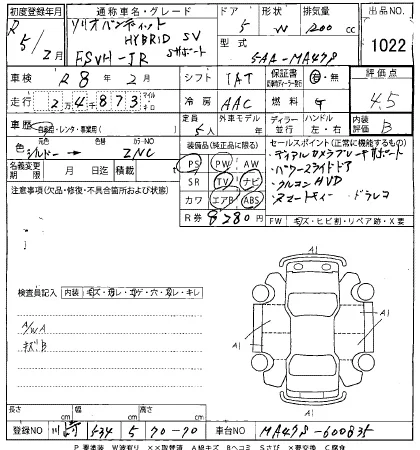 初度登録年月 通称車名・グレード ドア 形状 排気量 出品 NO.
R 5/2月 ソリオバンディット HYBRID SV 5 W 1200 cc 1022
FSVH-JR Sサポート 型式 5AA-MA47S
車検 R8年2月 シフト IAT 保証書 有・無 評価点
走行 2万4873 マイル キロ 冷房 AAC 燃料 G 4.5
車歴 自家用・レンタ・事業用( ) 定員 5人 外車モデル 年 ディーラー 並行 ハンドル 左・右 内装評価 B
色 元色 シルバー → カラーNO ZNC
名義変更期限 月 日迄 積載
注意事項(欠品・修復・不具合箇所および状態)
装備品(純正品に限る)
PS PW AW
SR TV ナビ
カワ エアB ABS
R券 8380
セールスポイント(正常に機能するもの)
・デュアルカメラブレーキサポート
・パワースライドドア
・クルコン HUD
・スマートキー ・ドラレコ
FW キズ・ヒビ割・リペア跡・X要
検査員記入 内装・キズ・汚レ・コゲ・穴・切レ・キレ
A/WA
キズB
A1
A1
A1
A1
長さ cm 幅 cm 高さ cm
登録NO 534 5 70-70 車台NO MA47S-600835
P 要塗装 W 波有り ××取替済 A 線キズ Bヘコミ Sさび ×要交換 C 腐食